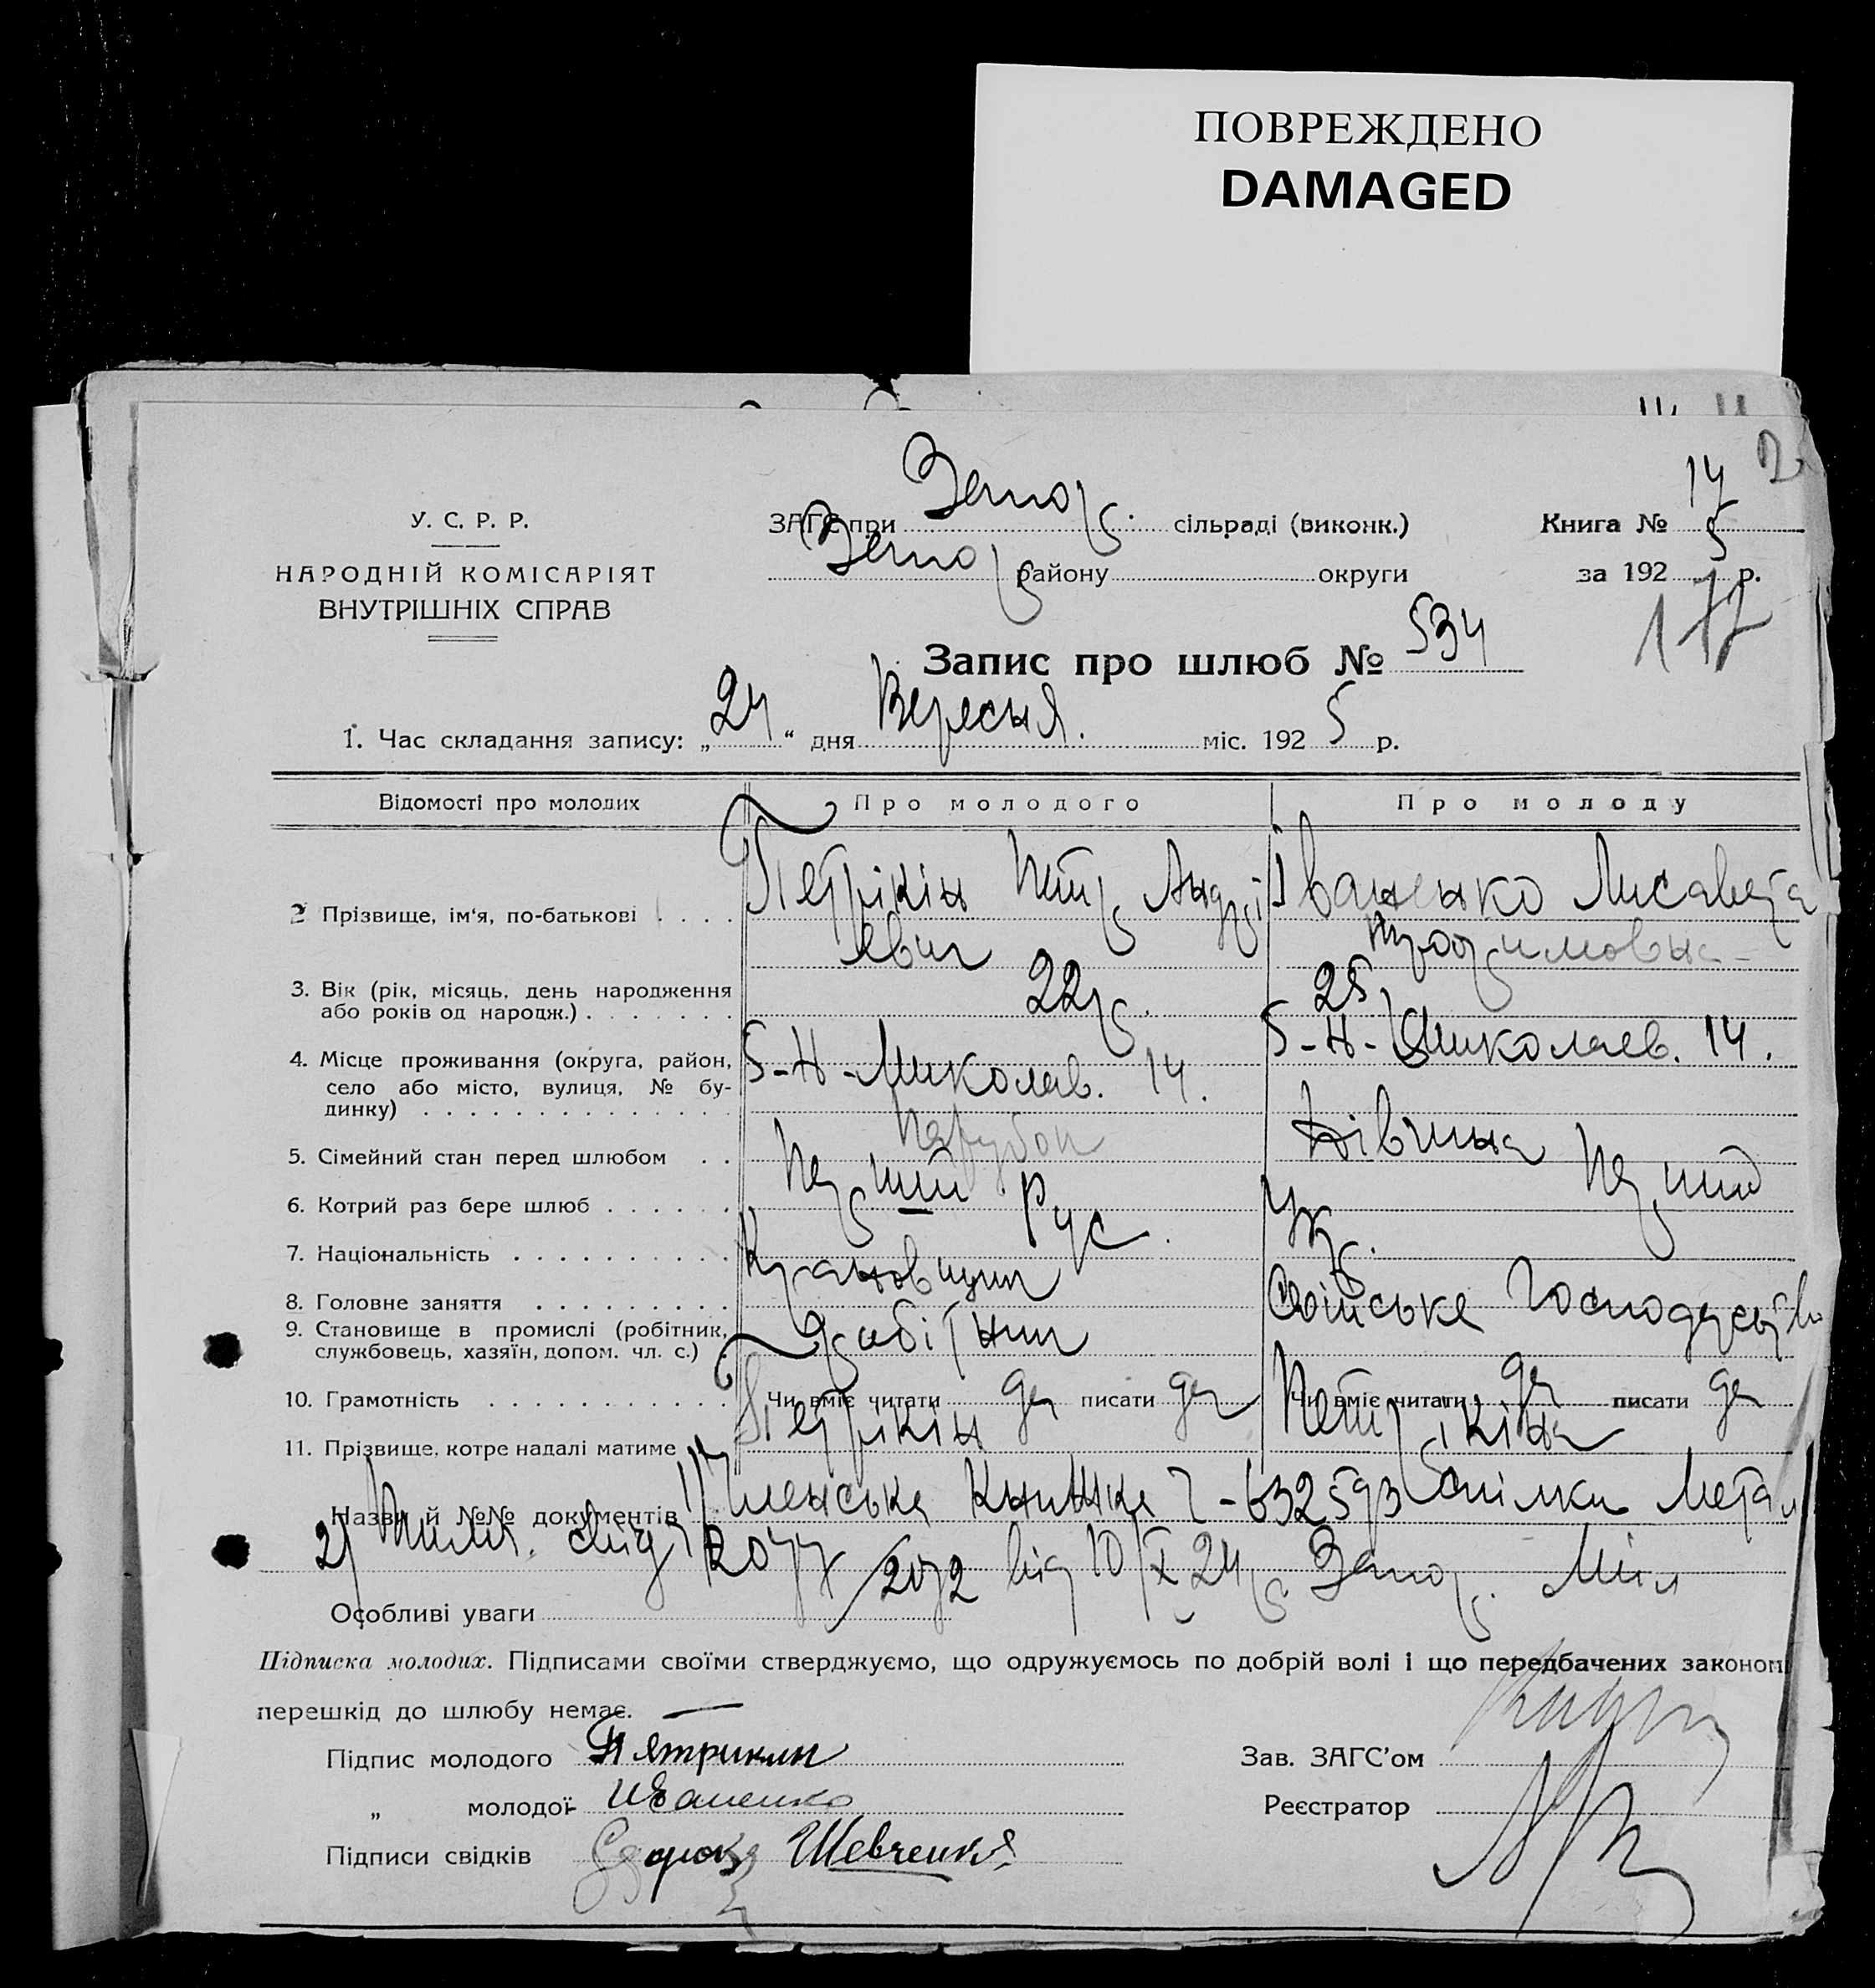 ПОВРЕЖДЕНО
DAMAGED
У. С. Р. Р.
НАРОДНІЙ КОМІСАРІЯТ
ВНУТРІШНІХ СПРАВ
ЗАГС при Запор. сільраді (виконк.)
Запор району округи
Книга № 14
за 192 5 р.
177
Запис про шлюб № 534
1. Час складання запису: „ 24 “ дня Вересня. міс. 192 5 р.
Відомості про молодих Про молодого Про молоду
2 Прізвище, ім'я, по-батькові . . . . Петрікін Петр Андрі Іваненко Лисавета
евич
3. Вік (рік, місяць, день народження 22р. 25
або років од народж.) . . . . . . .
4. Місце проживання (округа, район, 5-Н-Миколав. 14. 5-Н-Миколаев. 14.
село або місто, вулиця, № бу-
динку) . . . . . . . . . . . . . .
5. Сімейний стан перед шлюбом . . Парубок Дівчина
6. Котрий раз бере шлюб . . . . . . Перший Перший
7. Національність . . . . . . . . . . Рус. Укр.
8. Головне заняття . . . . . . . . . Крановщик Господарство
9. Становище в промислі (робітник, робітник
службовець, хазяїн, допом. чл. с.) .
10. Грамотність . . . . . . . . . . . Чи вміє читати да писати да Чи вміє читати да писати да
11. Прізвище, котре надалі матиме . Петрікін Петрікіна
Назви й №№ документів 1) Членська Книжка Спілки Метал
2) від 10/X 24р. Запор. Міл
Особливі уваги
Підписка молодих. Підписами своїми стверджуємо, що одружуємось по добрій волі і що передбачених законом
перешкід до шлюбу немає.
Підпис молодого Пятрикин Зав. ЗАГС'ом
„ молодої Иваненко Реєстратор
Підписи свідків Шевченко